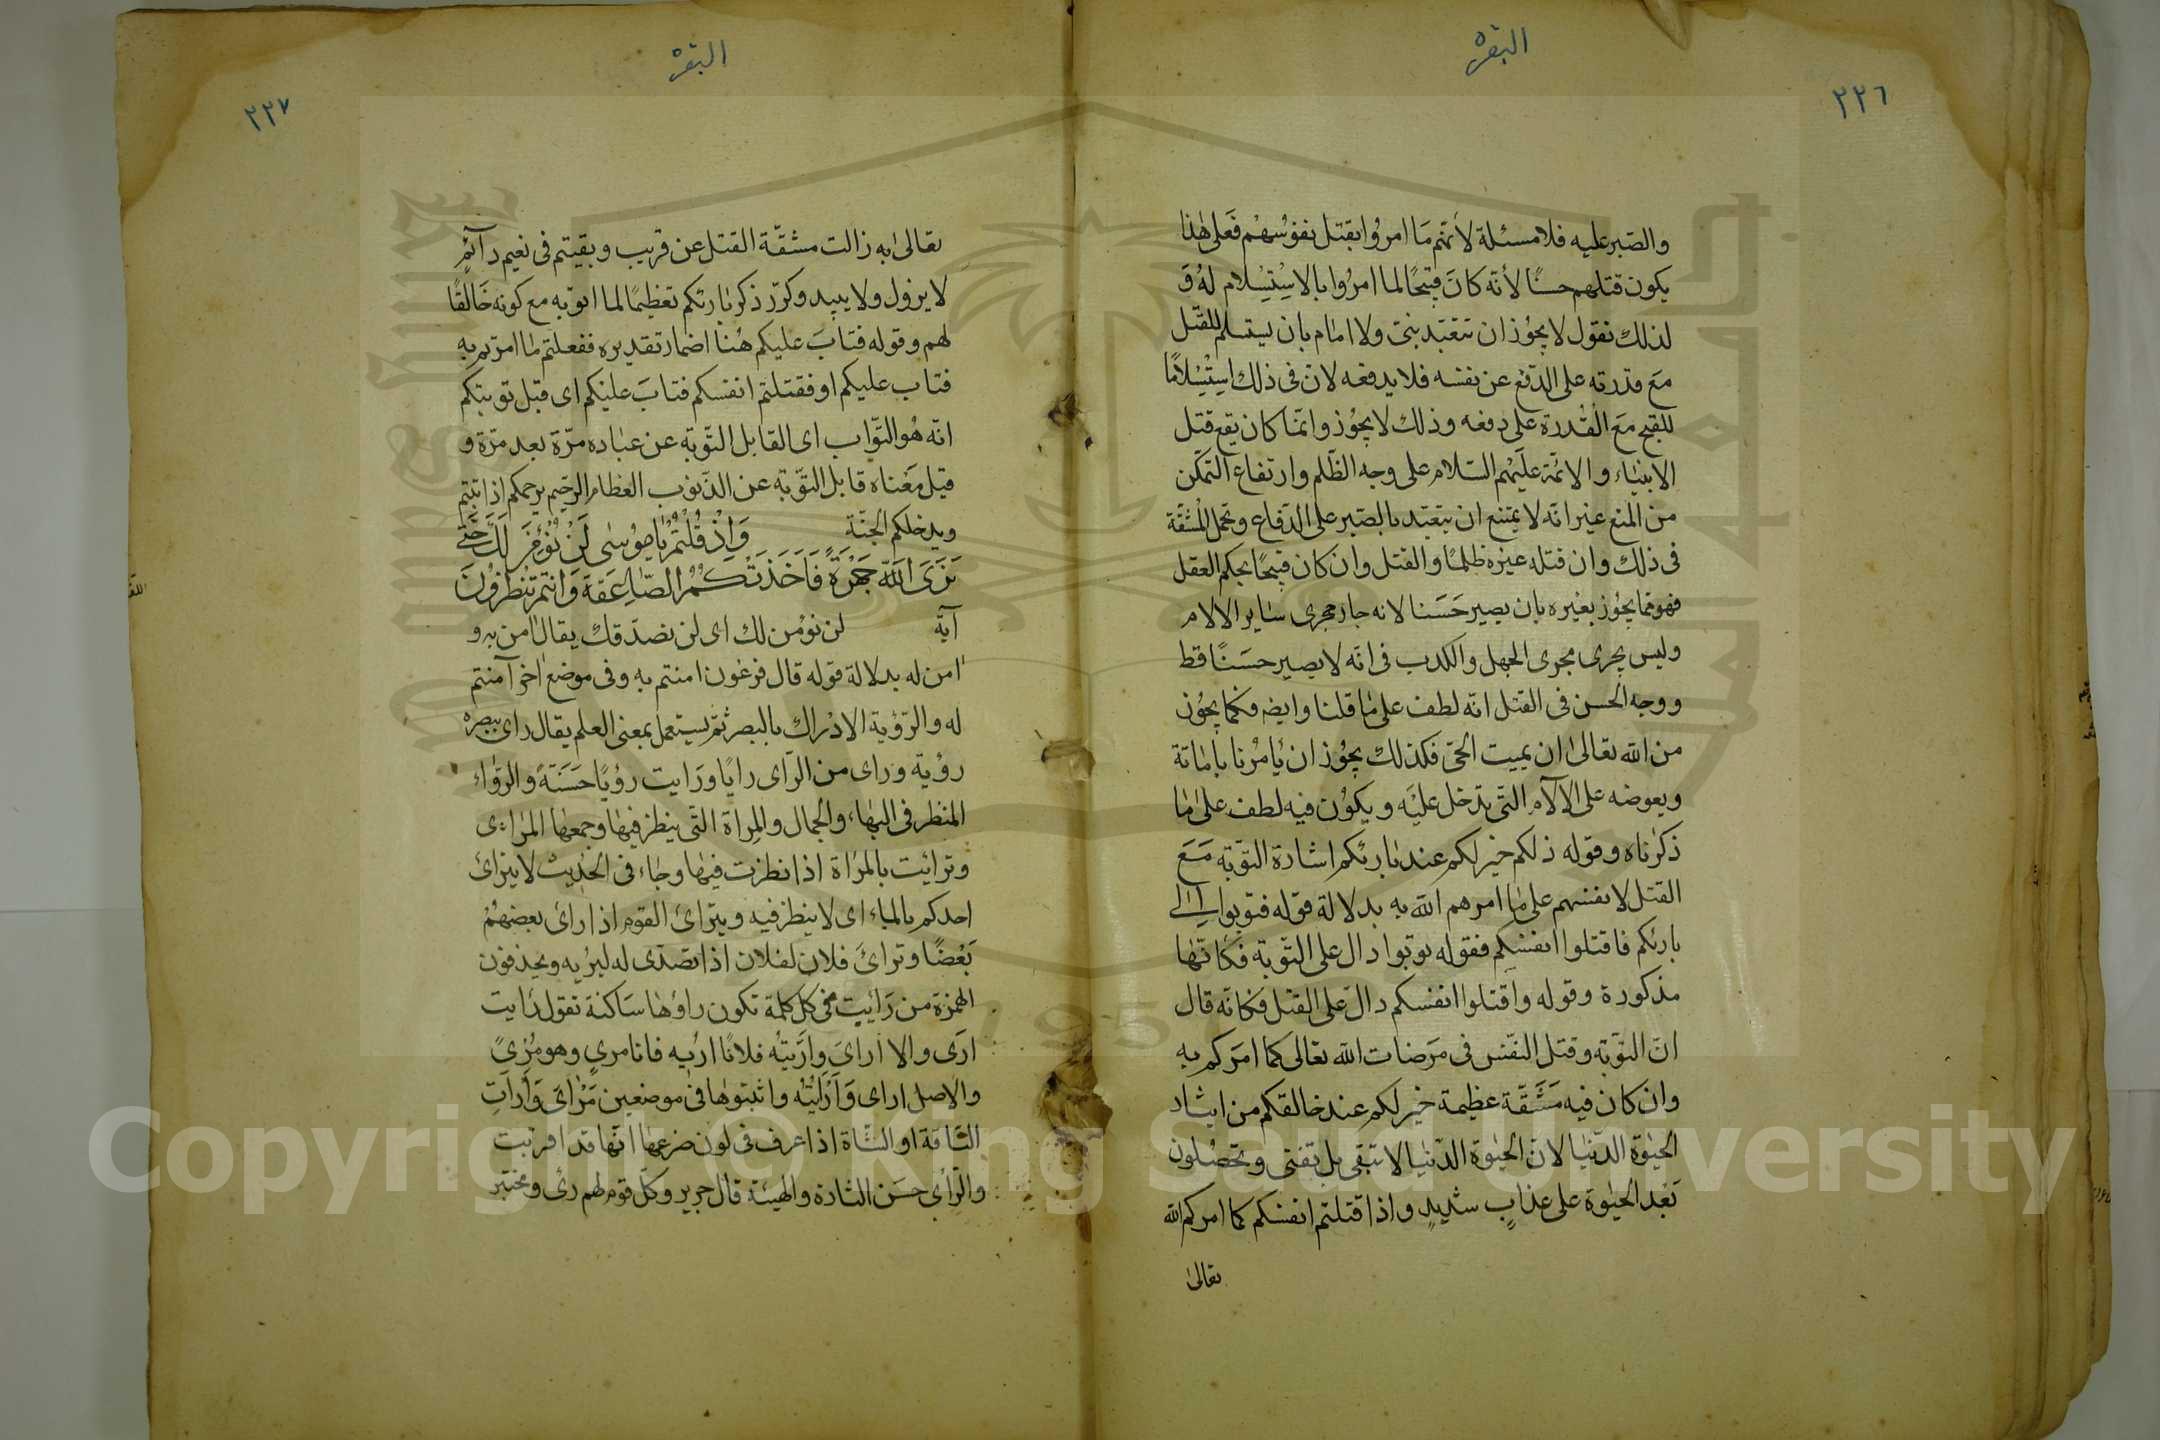 البقرة
٢٢٦
والصبر عليه فلا مسئلة لأنهم ما امروا بقتل نفوسهم فعلى هذا
يكون قتلهم حسنًا لأنه كان قبيحًا لما امروا بالاستسلام له و
لذلك نقول لا يجوز ان نتعبد بنبي ولا امام بان يستسلم للقتل
مع قدرته على الدفع عن نفسه فلا يدفعه لان في ذلك استسلامًا
للقبيح مع القدرة على دفعه وذلك لا يجوز وانما كان يقع قتل
الانبياء والائمة عليهم السلام على وجه الظلم وارتفاع التمكن
من المنع غير انه لا يمتنع ان يتعبد بالصبر على الدفاع وتحمل المشقة
في ذلك وان قتله غيره ظلمًا والقتل وان كان قبيحًا بحكم العقل
فهو مما يجوز بغيره بان يصير حسنا لانه جار مجرى ساير الالام
وليس يجري مجرى الجهل والكذب في انه لا يصير حسنًا قط
ووجه الحسن في القتل انه لطف على ما قلنا وايضا فكما يجوز
من الله تعالى ان يميت الحي فكذلك يجوز ان يأمرنا باماتة
ويعوضه على الآلام التي تدخل عليه ويكون فيه لطف على ما
ذكرناه وقوله ذلكم خير لكم عند بارئكم اشارة التوبة مع
القتل لانفسهم على ما امرهم الله به بدلالة قوله فتوبوا الى
بارئكم فاقتلوا انفسكم فقوله توبوا دال على التوبة فكانها
مذكورة وقوله واقتلوا انفسكم دال على القتل فكانه قال
ان التوبة وقتل النفس في مرضات الله تعالى كما امركم به
وان كان فيه مشقة عظيمة خير لكم عند خالقكم من ايثار
الحيوة الدنيا لان الحيوة الدنيا لا تبقى بل تفنى وتحصلون
بعد الحيوة على عذاب شديد واذا قتلتم انفسكم كما امركم الله
تعالى
البقرة
٢٢٧
تعالى به زالت مشقة القتل عن قريب وبقيتم في نعيم دآئم
لا يزول ولا يبيد وكرر ذكر بارئكم تعظيمًا لما اتوا به مع كونه خالقًا
لهم وقوله فتاب عليكم هنا اضمار تقديره ففعلتم ما امرتم به
فتاب عليكم او فقتلتم انفسكم فتاب عليكم اى قبل توبتكم
انه هو التواب اى القابل التوبة عن عباده مرة بعد مرة و
قيل معناه قابل التوبة عن الذنوب العظام الرحيم يرحمكم اذا تبتم
ويدخلكم الجنة وَاِذْ قُلْتُمْ يٰا مُوسٰى لَنْ نُؤْمِنَ لَكَ حَتّٰى
نَرَى اللّٰهَ جَهْرَةً فَاَخَذَتْكُمُ الصّٰاعِقَةُ وَاَنْتُمْ تَنْظُرُونَ
آية لن نؤمن لك اى لن نصدقك يقال امن به و
امن له بدلالة قوله قال فرعون امنتم به وفي موضع اخر آمنتم
له والرؤية الادراك بالبصر ثم يستعمل بمعنى العلم يقال راى ببصره
رؤية وراى من الراى رايًا ورايت رؤيًا حسنةً والرواء
المنظر في البهاء والجمال والمراة التي ينظر فيها وجمعها المراءى
وترائيت بالمراة اذا نظرت فيها وجاء في الحديث لا يترائ
احدكم بالماء اى لا ينظر فيه ويترائ القوم اذا راى بعضهم
بعضًا وترائ فلان لفلان اذا تصدى له ليريه ويحذفون
الهمزة من رايت في كل كلمة تكون راؤها ساكنة تقول رايت
ارى والا اراى واريته فلانًا اريه فانا مري وهو مريً
والاصل اراى وارايته واثبتوها في موضعين مرائي وارات
الناقة او الشاة اذا عرف في لون ضرعها انها قد اقربت
والرائ حسن الشارة والهيئة قال جرير وكل قوم لهم رئ ومختبر
Copyright © King Saud University